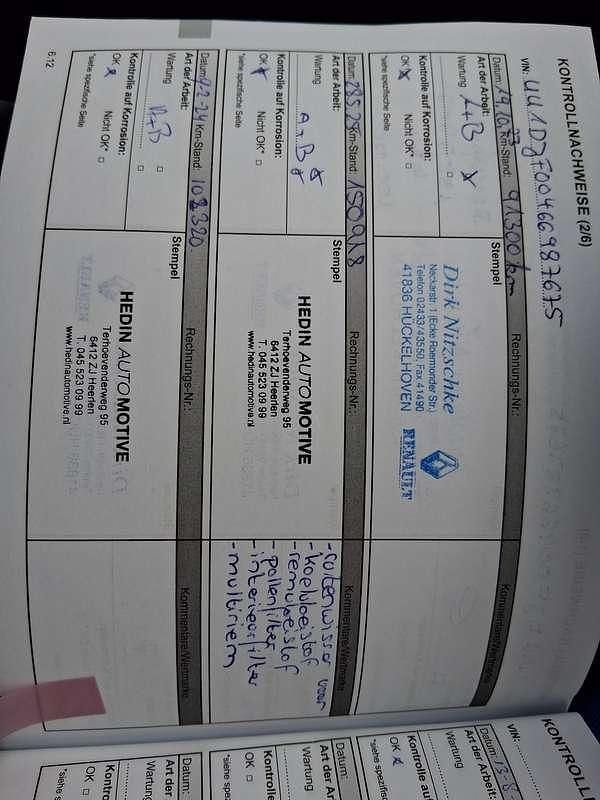 KONTROLLNACHWEISE (2/6)
VIN:
Datum: 19.10.23 Km-Stand: 91300 km
Rechnungs-Nr.:
Kommentare/Wertmarke
Art der Arbeit:
Wartung A+B
Kontrolle auf Korrosion:
OK Nicht OK*
*siehe spezifische Seite
Stempel
Dirk Nitzschke
Neckarstr. 1 (Ecke Roermonder Str.)
Telefon 02433/43550, Fax 41490
41836 HÜCKELHOVEN
RENAULT
Datum: Km-Stand: 150918
Rechnungs-Nr.:
Kommentare/Wertmarke
Art der Arbeit:
Wartung A+B
Kontrolle auf Korrosion:
OK Nicht OK*
*siehe spezifische Seite
Stempel
HEDIN AUTOMOTIVE
Terhoevenderweg 95
6412 ZJ Heerlen
T. 045 523 09 99
www.hedinautomotive.nl
- rutenwisser voor
- koelvloeistof
- remvloeistof
- pollenfilter
- interieurfilter
- multiriem
Datum: Km-Stand:
Rechnungs-Nr.:
Kommentare/Wertmarke
Art der Arbeit:
Wartung A+B
Kontrolle auf Korrosion:
OK Nicht OK*
*siehe spezifische Seite
Stempel
HEDIN AUTOMOTIVE
Terhoevenderweg 95
6412 ZJ Heerlen
T. 045 523 09 99
www.hedinautomotive.nl
6.12
KONTROLL
VIN:
Datum:
Art der Arbeit
Wartung
Kontrolle auf
OK
*siehe spezifisc
Datum:
Art der Ar
Wartung
Kontrol
OK
*siehe s
Datum:
Art der
Wartun
Kontro
OK
*siehe s